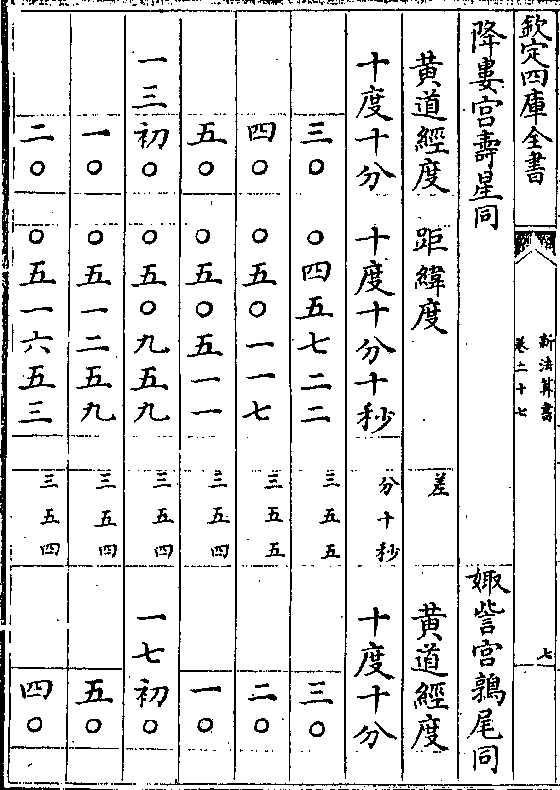 欽定四庫全書
新法算書
卷二十七
七
降婁宮壽星同
娵訾宮鶉尾同
黃道經度 距緯度 差 黃道經度
十度十分 十度十分十秒 分十秒 十度十分
三〇 〇四五七二二 三五五 三〇
四〇 〇五〇一一七 三五五 二〇
五〇 〇五〇五一一 三五四 一〇
一三初〇 〇五〇九五九 三五四 一七初〇
一〇 〇五一二五九 三五四 五〇
二〇 〇五一六五三 三五四 四〇